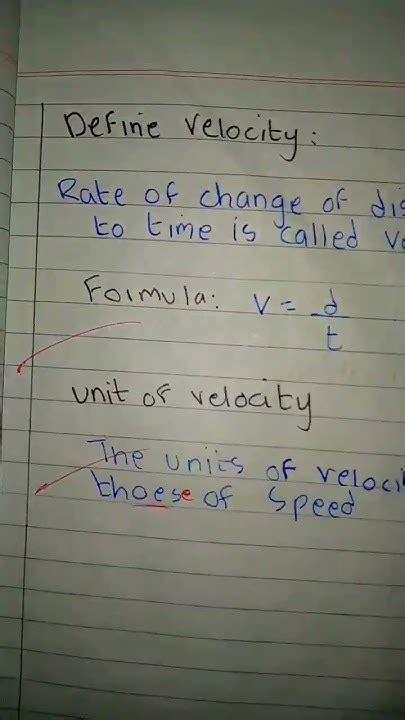 Define velocity:
Rate of change of dis
to time is called v
Formula: V = d
t
unit of velocity
The units of veloci
thoese of speed